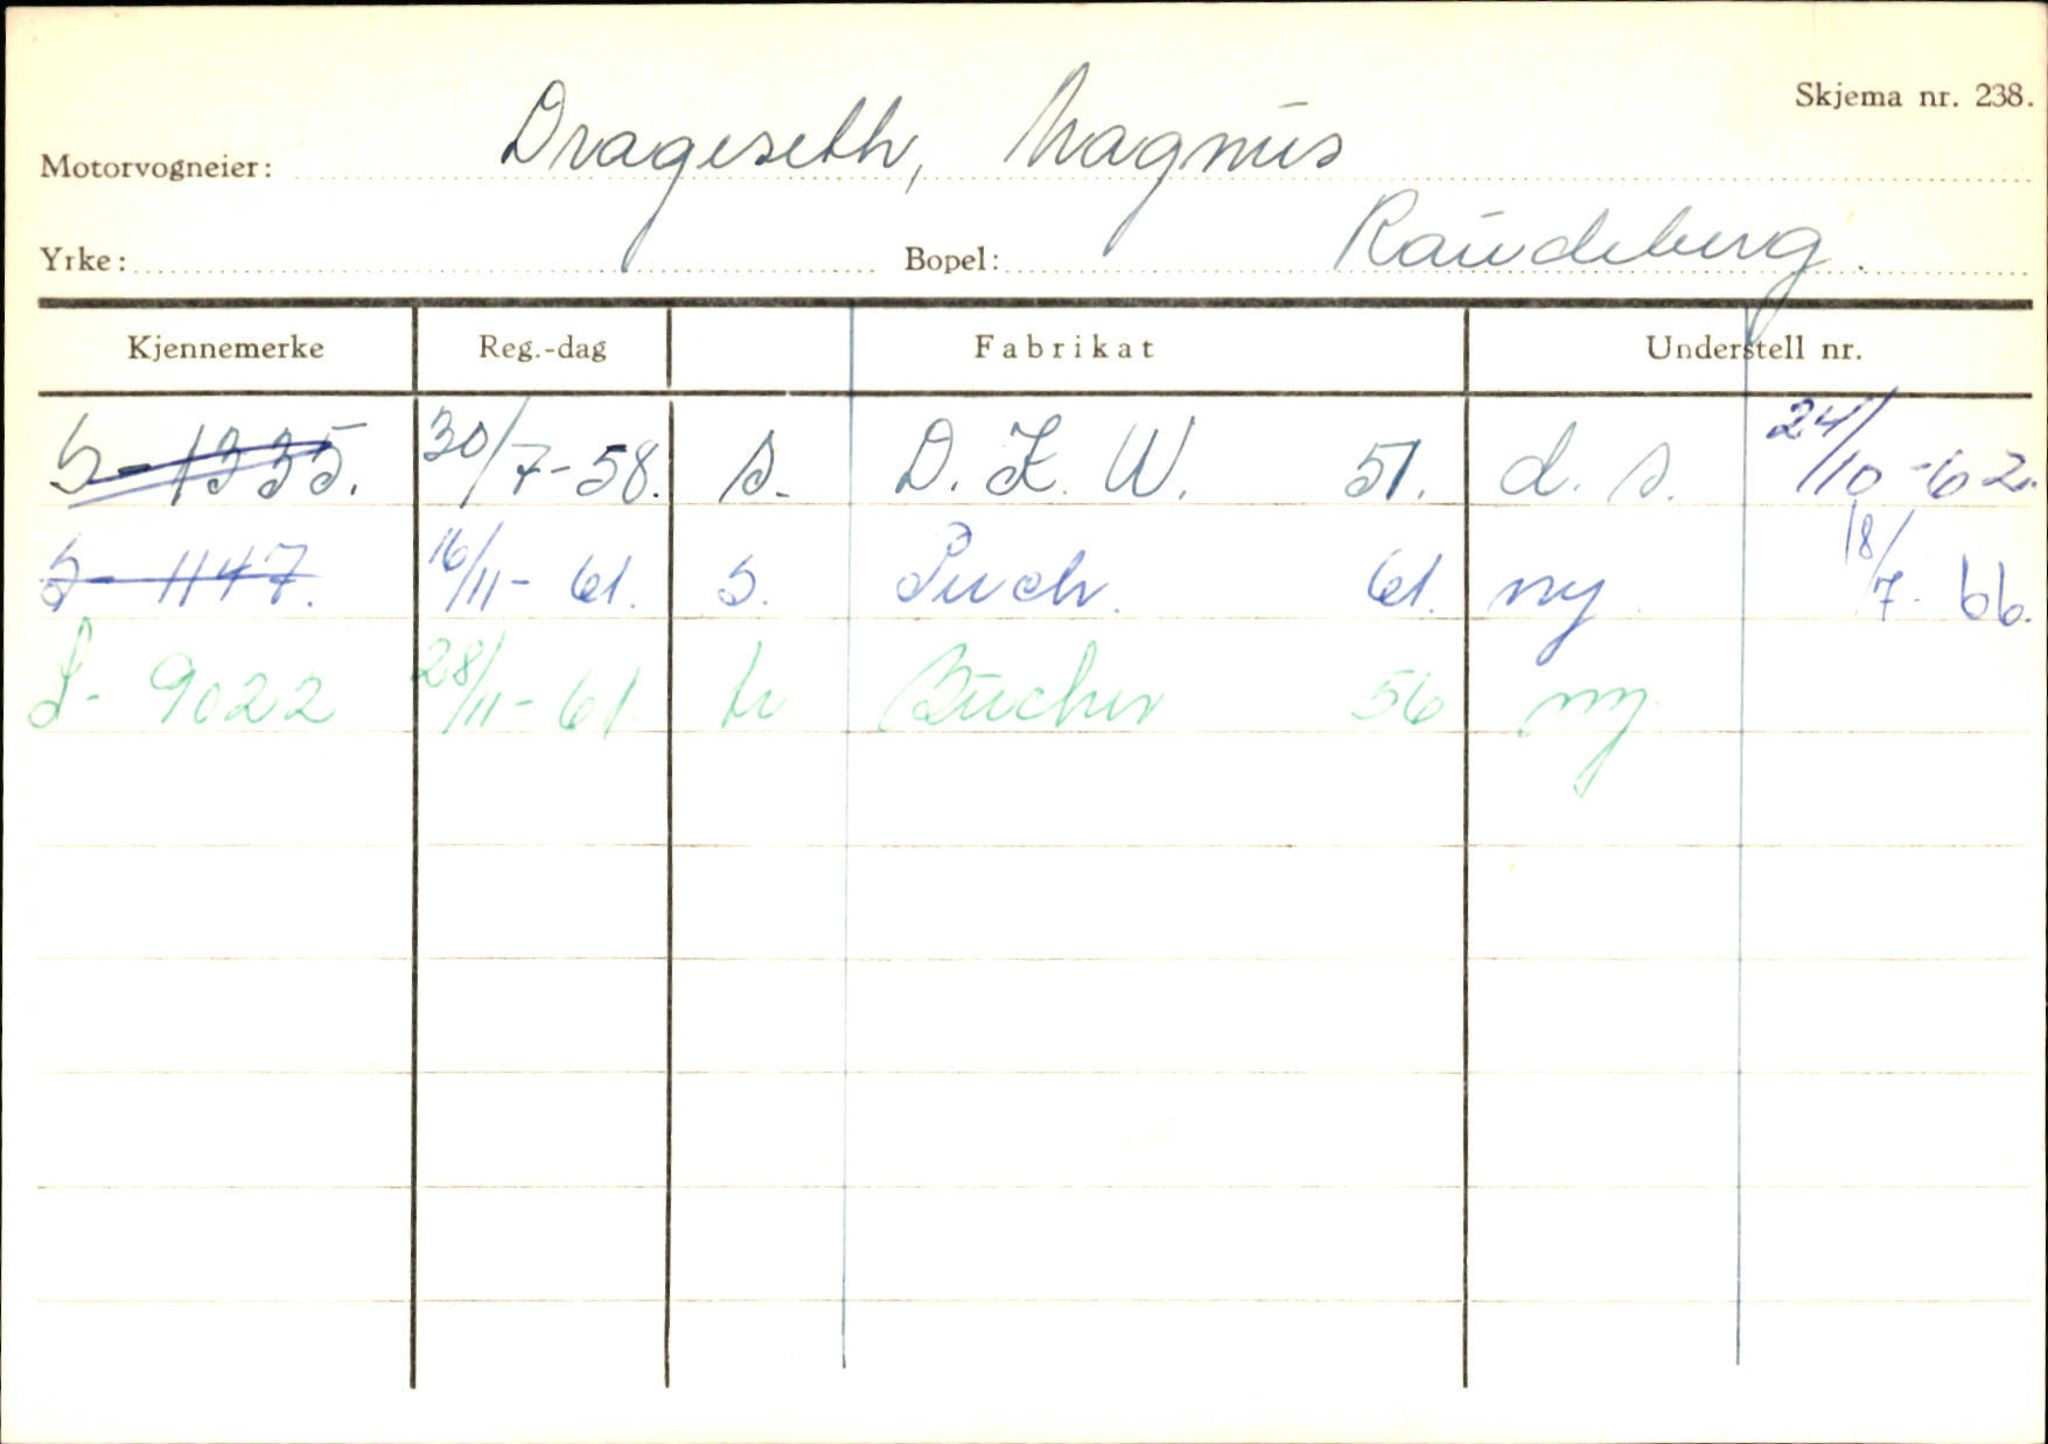 Skjema nr. 238.
Motorvogneier: Drageseth, Magnus
Yrke: Bopel: Raudeberg.
Kjennemerke Reg.-dag Fabrikat Understell nr.
S-1335. 30/7-58. s. D.K.W. 51. d.s. 24/10-62.
S-1147. 16/11-61. s. Puch. 61. ny. 18/7-66.
S-9022 28/11-61. tr Bucher 56 ny.